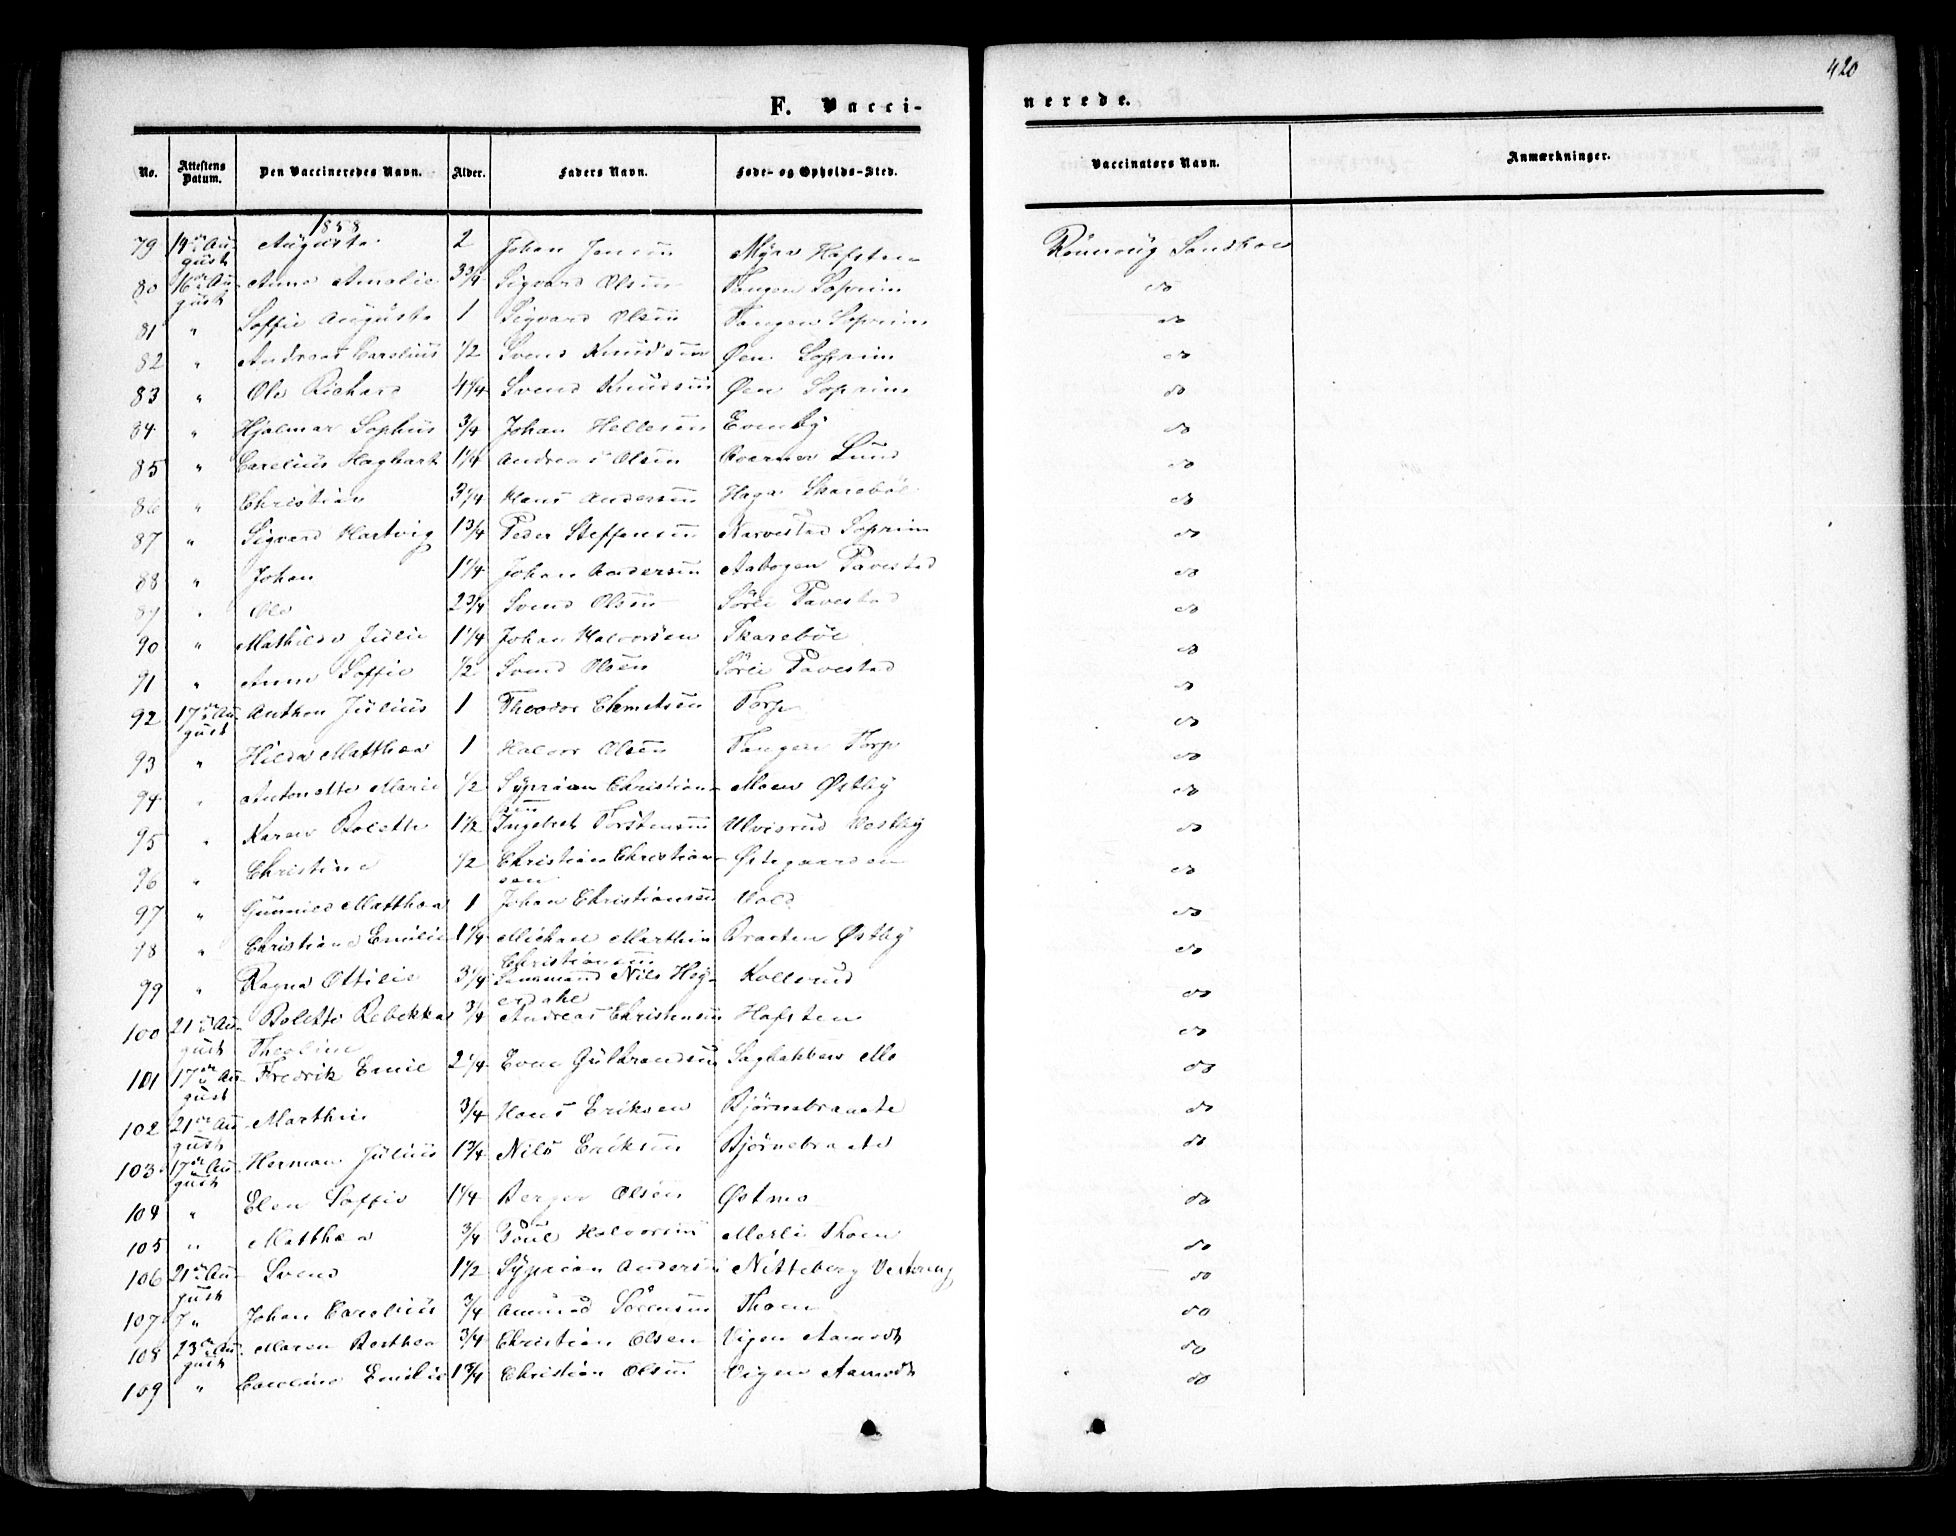 420
F. Vaccinerede.
No. Attestens Datum. Den Vaccineredes Navn. Alder. Faders Navn. Føde- og Opholds-Sted. Vaccinators Navn. Anmærkninger.
1858
79 14de August Augusta 2 Johan Jensen Myra Hafsten
80 16de August Anne Amalie 3 3/4 Sigvard Olsen Tangen Soprim do
81 " Soffie Augusta 1 Sigvard Olsen Tangen Soprim do
82 " Andreas Carelius 1/2 Svend Knudsen Øen Soprim do
83 " Ole Richard 4 1/4 Svend Knudsen Øen Soprim do
84 " Hjalmar Sophus 3/4 Johan Hellesen Evenby do
85 " Carelius Haghart 1 1/4 Andreas Olsen Lund do
86 " Christian 3 1/4 Hans Andersen Haga Skarebøl do
87 " Sigvard Hartvig 1 3/4 Peder Steffensen Narvestad Soprim do
88 " Johan 1 1/4 Johan Andersen Aabogen Tavestad do
89 " Ole 2 3/4 Svend Olsen Søren Tavestad do
90 " Mathilde Julie 1 1/4 Johan Halvorsen Skarebøl do
91 " Anne Soffie 1/2 Svend Olsen Tavestad do
92 17de August Anthon Julius 1 Theodor Clemetsen Torp do
93 " Hilda Matthea 1 Halvor Olsen Tangen Torp do
94 " Antonette Marie 1/2 Syprian Christiansen Moen Østby do
95 " Karen Bolette 1 1/2 Ingebret Torstensen Ulvisrud Vestby do
96 " Christine 1/2 Christian Christiansen Østgaarden do
97 " Gunnild Matthea 1 Johan Christiansen Vold do
98 " Christiane Emilie 1 1/4 Michael Marthin Christiansen Braaten Østby do
99 " Ragna Ottilie 3 1/4 Lensmand Nils Heyerdahl Kollerud do
100 21de August Bolette Rebekka Theoline 3/4 Andreas Christensen Hafsten do
101 17de August Fredrik Emil 2 1/4 Even Gulbrandsen Sagbakken Mo do
102 21de August Marthin 3/4 Hans Eriksen Bjørnebraate do
103 17de August Herman Julius 1 3/4 Nils Eriksen Bjørnebraate do
104 " Elen Soffie 1 1/4 Berger Olsen Østmo do
105 " Matthea 3/4 Poul Halvorsen Thoen do
106 21de August Svend 1 1/2 Syprian Andersen Nitteberg Vestereng do
107 " Johan Carelius 3/4 Amund Sørensen Thoen do
108 23de August Maren Berthea 3/4 Christian Olsen Vigen Aamodt do
109 " Caroline Emilie 1 3/4 Christian Olsen Vigen Aamodt do